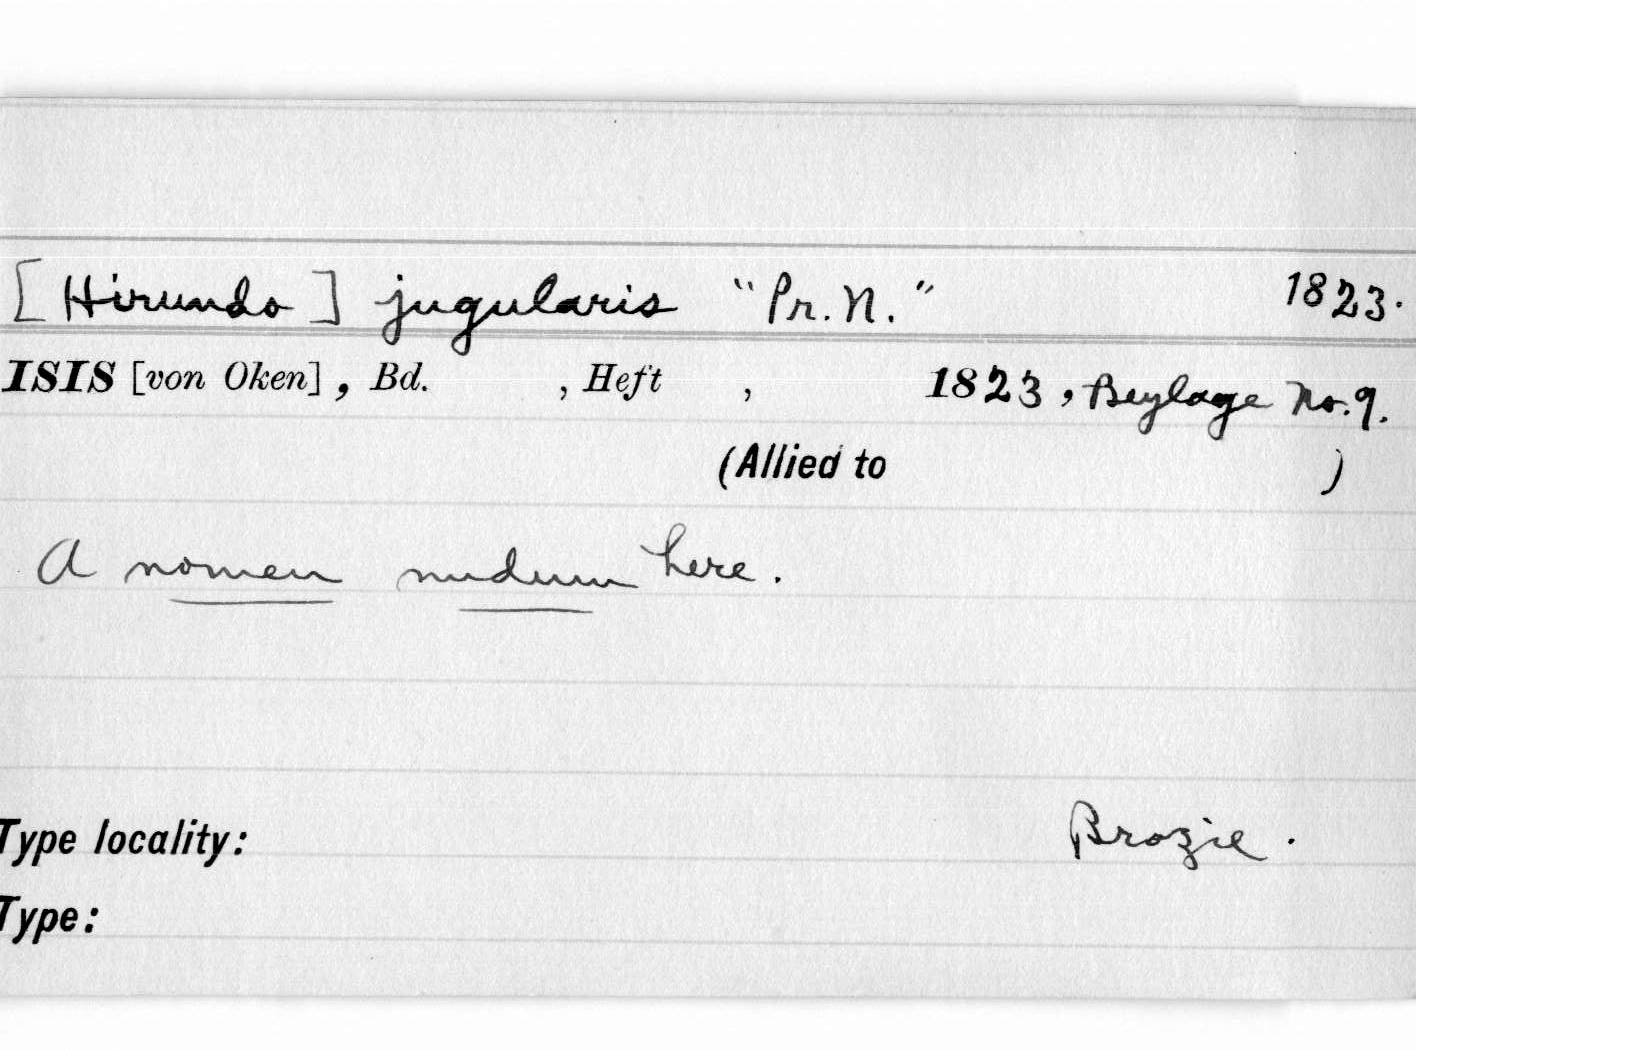 [Hirundo] jugularis "Pr. N." 1823.
ISIS [von Oken], Bd. , Heft , 1823, Beylage No. 9.
(Allied to )
A nomen nudum here.
Type locality: Brazie.
Type: